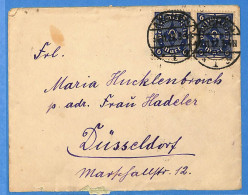 Frl.
Maria Hucklenbroich
p. adr. Frau Hadeler
Düsseldorf
Marschallstr. 12.